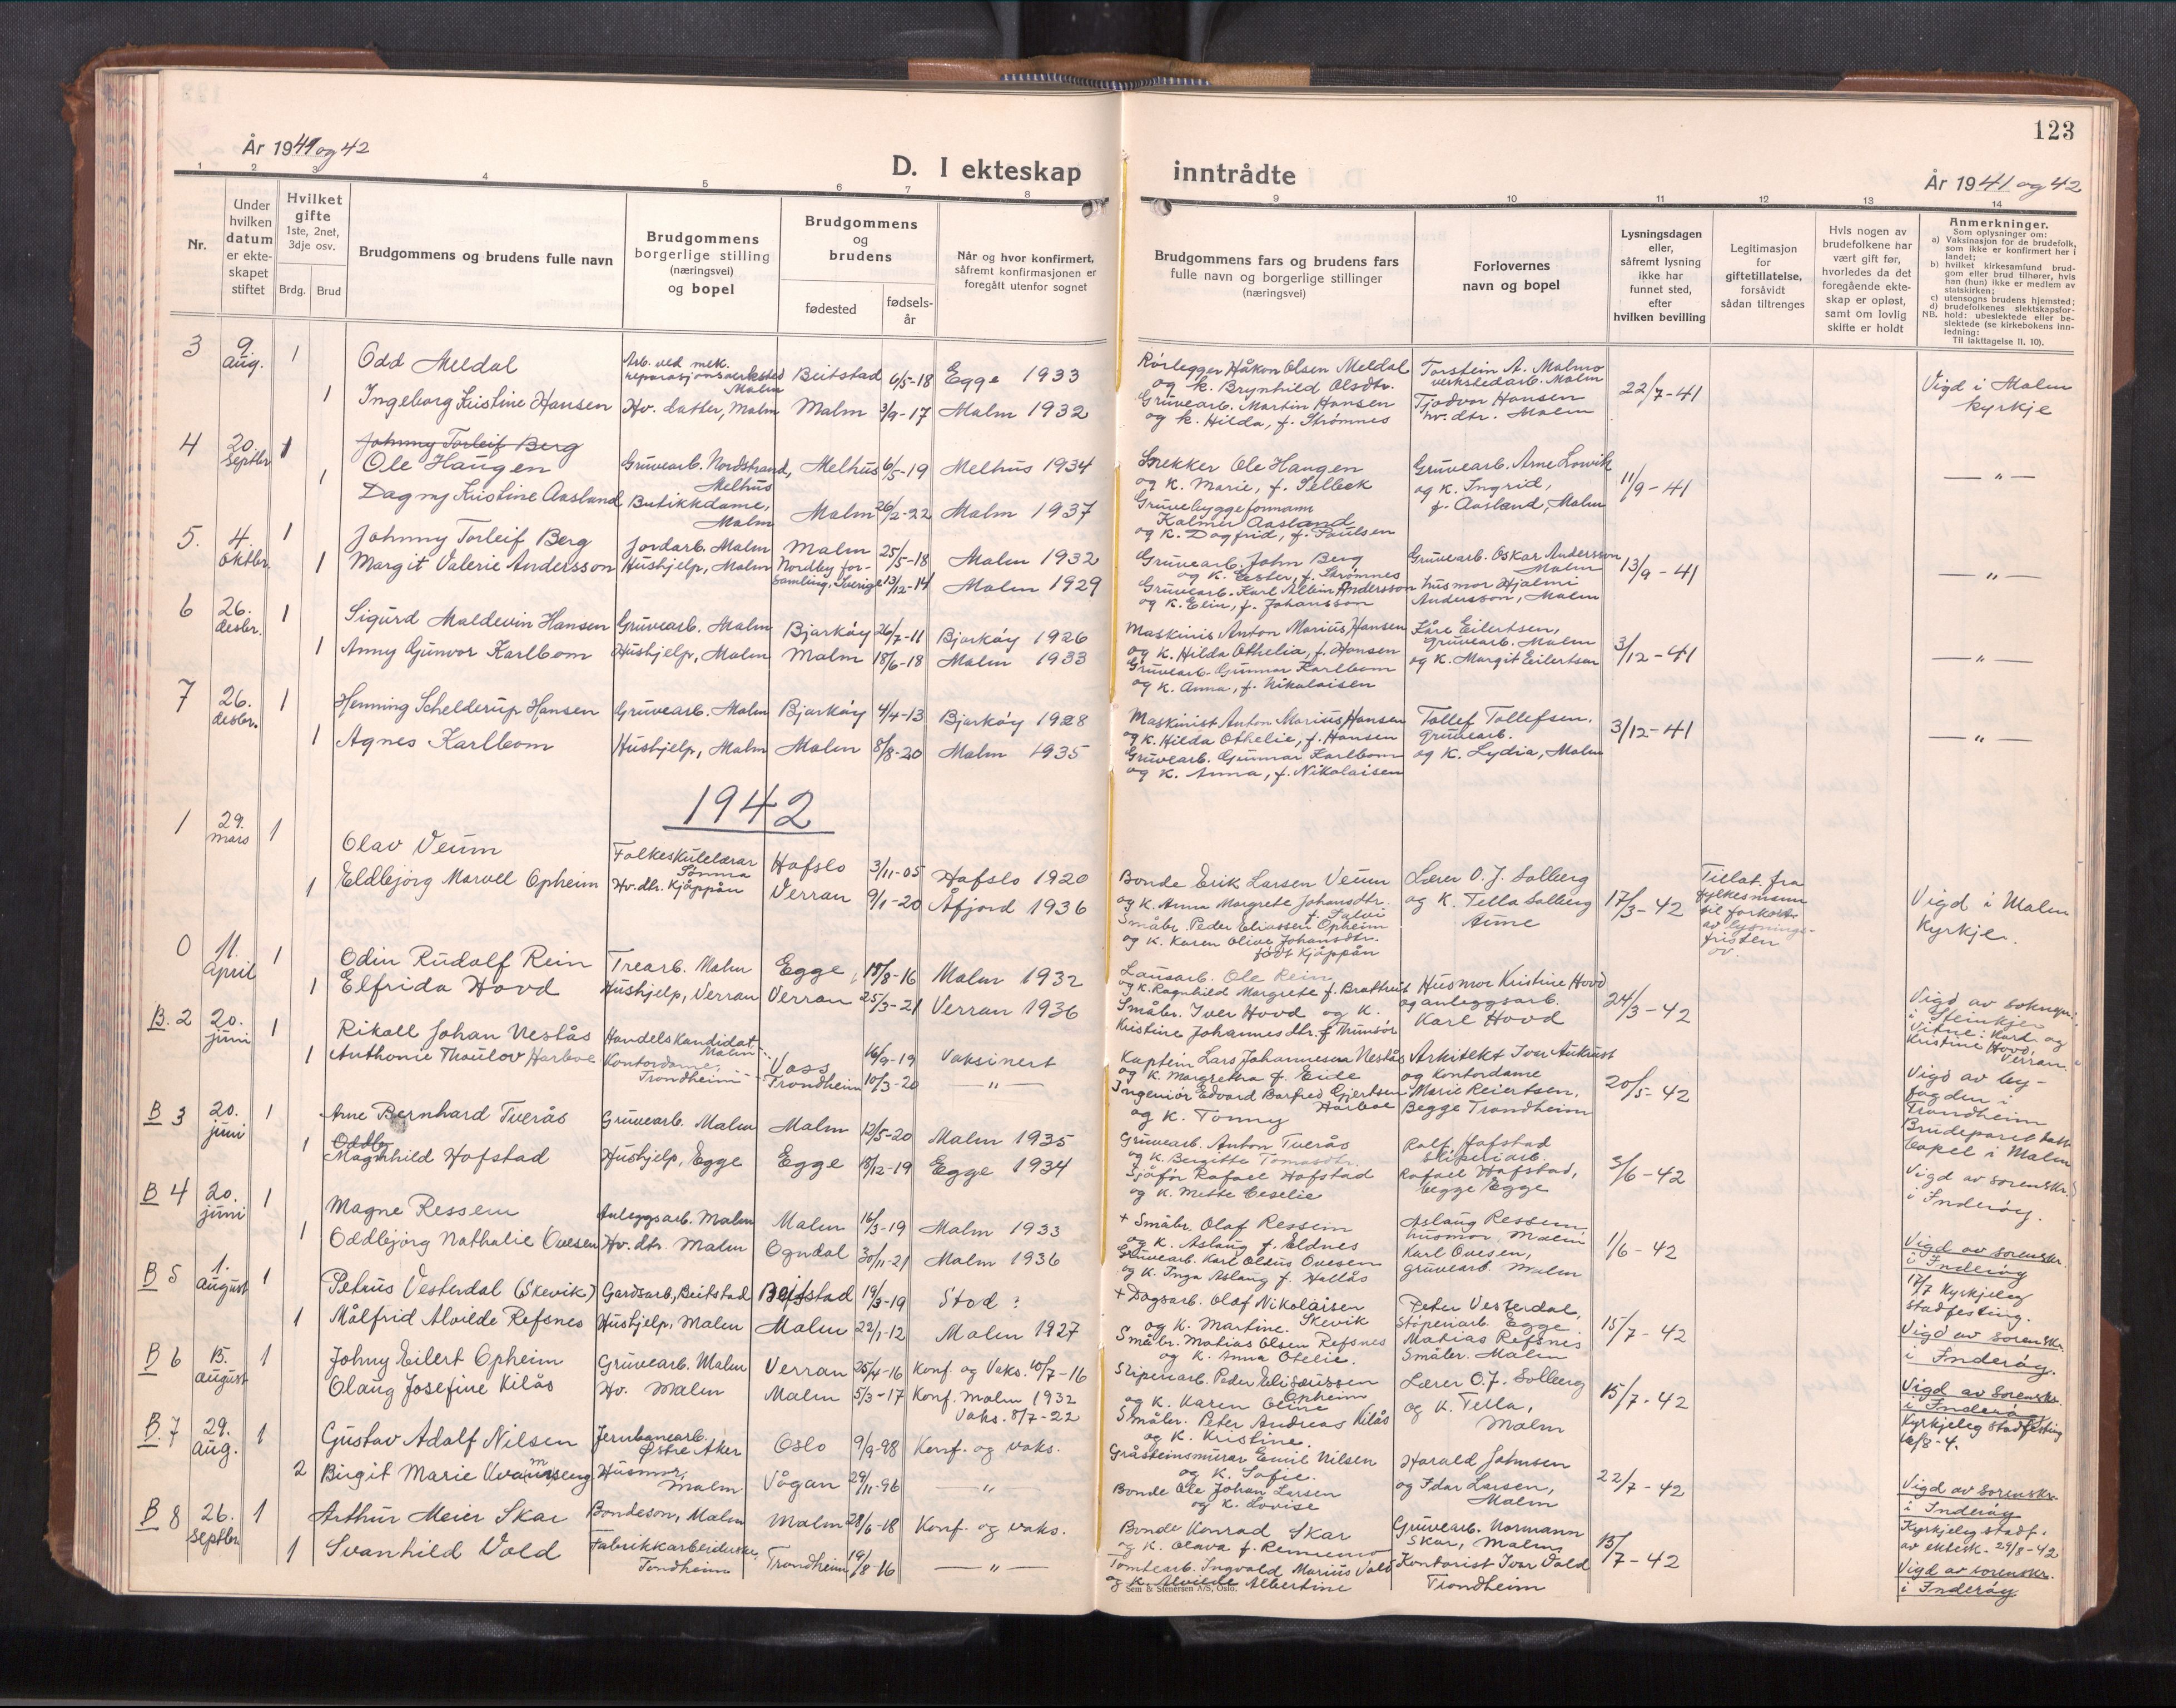 123
År 1941 og 42
D. I ekteskap inntrådte
År 1941 og 42
1 2 3 4 5 6 7 8 9 10 11 12 13 14
Nr.
Under hvilken datum er ekteskapet stiftet
Hvilket gifte 1ste, 2net, 3dje osv.
Brdg. Brud
Brudgommens og brudens fulle navn
Brudgommens borgerlige stilling (næringsvei) og bopel
Brudgommens og brudens
fødested
fødselsår
Når og hvor konfirmert, såfremt konfirmasjonen er foregått utenfor sognet
Brudgommens fars og brudens fars fulle navn og borgerlige stillinger (næringsvei)
Forlovernes navn og bopel
Lysningsdagen eller, såfremt lysning ikke har funnet sted, efter hvilken bevilling
Legitimasjon for giftetillatelse, forsåvidt sådan tiltrenges
Hvis nogen av brudefolkene har vært gift før, hvorledes da det foregående ekteskap er opløst, samt om lovlig skifte er holdt
Anmerkninger.
Som oplysninger om:
a) Vaksinasjon for de brudefolk, som ikke er konfirmert her i landet;
b) hvilket kirkesamfund brudgom eller brud tilhører, hvis han (hun) ikke er medlem av statskirken;
c) utensogns brudens hjemsted;
d) brudefolkenes slektskapsforhold: ubeslektede eller beslektede (se kirkebokens innledning:
NB. Til iakttagelse II, 10).
3 9. aug. 1 Odd Meldal Arb. ved mek. reparasjonsverksted Malm Beitstad 6/5-18 Egge 1933
1 Ingeborg Kristine Hansen Hv. datter, Malm Malm 3/9-17 Malm 1932
Rörlegger Håkon Olsen Meldal
og k. Brynhild Olsdtr.
Gruvearb. Martin Hansen
og k. Hilda, f. Strømnes
Torstein A. Malmo
verkstedarb. Malm
Tjodvor Hansen
hv. dtr. Malm
22/7-41
Vigd i Malm kyrkje
4 20. septbr 1 Johnny Torleif Berg
Ole Haugen Gruvearb. Nordstrand, Melhus Melhus 6/5-19 Melhus 1934
1 Dagny Kristine Aasland Butikkdame, Malm Malm 26/2-22 Malm 1937
Snekker Ole Haugen
og K. Marie, f. Selbek
Gruvebyggeformann
Kalmer Aasland
og K. Dagfrid, f. Paulsen
Gruvearb. Arne Lorvik
og K. Ingrid,
f. Aasland, Malm
11/9-41
— " —
5. 4. oktbr. 1 Johnny Torleif Berg Jordarb. Malm Malm 25/5-18 Malm 1932
1 Margit Valerie Andersson Hushjelp, Malm Nordby forsamling, Sverige 13/12-14 Malm 1929
Gruvearb. John Berg
og K. Ester, f. Strømnes
Gruvearb. Karl Albin Andersson
og K. Elin, f. Johansson
Gruvearb. Oskar Andersson
Malm
husmor Hjalmi
Andersson, Malm
13/9-41
— " —
6 26. desbr. 1 Sigurd Maldevin Hansen Gruvearb. Malm Bjarköy 26/7-11 Bjarköy 1926
1 Anny Gunvor Karlbom Hushjelp, Malm Malm 18/6-18 Malm 1933
Maskinis Anton Marius Hansen
og K. Hilda Othelia, f. Hansen
Gruvearb. Gunnar Karlbom
og K. Anna, f. Nikolaisen
Kåre Eilertsen,
gruvearb. Malm
og K. Margit Eilertsen
3/12-41
— " —
7 26. desbr. 1 Henning Schelderup Hansen Gruvearb. Malm Bjarköy 4/4-13 Bjarköy 1928
1 Agnes Karlbom Hushjelp, Malm Malm 8/8-20 Malm 1935
Maskinist Anton Marius Hansen
og K. Hilda Othelie, f. Hansen
Gruvearb. Gunnar Karlbom
og K. Anna, f. Nikolaisen
Tollef Tollefsen,
gruvearb.
og K. Lydia, Malm
3/12-41
— " —
1942
1 29. mars 1 Olav Veum Folkeskulelærar Hafslo 3/11-05 Hafslo 1920
1 Eldbjörg Marvel Opheim Hv. dtr. Kjöppån Verran 9/1-20 Åfjord 1936
Bonde Erik Larsen Veum
og K. Anna Margrete Johansdtr.
Småbr. Peder Eliassen Opheim
og K. Karen Olive Johansdtr.
født Kjöppån
Lærer O. J. Solberg
og K. Tella Solberg
17/3-42
Tillat. fra fylkesmann til forkort. av lysningsfristen
Vigd i Malm Kyrkje.
0 11. april 1 Odin Rudolf Rein Trearb. Malm Egge 18/8-16 Malm 1932
1 Elfrida Hovd Hushjelp, Verran Verran 25/3-21 Verran 1936
Lausarb. Ole Rein
og K. Ragnhild Margrete f. Bratreit
Småbr. Iver Hovd og K.
Kristine Johannesdtr.
Husmor Kristine Hovd
og anleggsarb.
Karl Hovd
24/3-42
Vigd av soknepr. i Steinkjer
Vitne: Karl og Kristine Hovd, Verran.
B. 2 20. juni 1 Rikall Johan Nestås Handelskandidat Malm Voss 16/9-19 Vaksinert
1 Anthonie Thaulov Harboe Kontordame, Trondheim Trondheim 10/3-20 — " —
Kaptein Lars Johannessen Nestås
og K. Margretha f. Eide
Ingeniör Edvard Barfred Gjertsen Harboe
og K. Tonny
Arkitekt Ivar Aukrust
og kontordame
Marie Reiertsen,
Begge Trondheim
20/5-42
Vigd av byfogden i Trondheim
B 3 20. juni 1 Arne Bernhard Tverås Gruvearb. Malm Malm 12/5-20 Malm 1935
1 Oddly Magnhild Hofstad Hushjelp, Egge Egge 18/12-19 Egge 1934
Gruvearb. Anton Tverås
og K. Bergitte Tomasdtr.
Sjåför Rafael Hofstad
og K. Mette Cecelie
Rolf Hofstad
Rafael Hofstad,
begge Egge
3/6-42
Vigd av sorenskr. i Inderöy.
B 4 20. juni 1 Magne Ressem Anleggsarb. Malm Malm 16/3-19 Malm 1933
1 Oddbjörg Nathalie Ovesen Hv. dtr. Malm Ogndal 30/11-21 Malm 1936
+ Småbr. Olaf Ressem
og K. Aslaug f. Eldnes
Gruvearb. Karl Olaus Ovesen
og K. Inga Aslaug f. Hallås
Aslaug Ressem,
husmor Malm
Karl Ovesen,
gruvearb. Malm
1/6-42
Vigd av sorenskr. i Inderöy
17/7 Kyrkjeleg stadfesting.
B 5 1. august 1 Petrus Vesterdal (Skevik) Gardsarb, Beitstad Beitstad 19/3-19 Stod ?
1 Målfrid Alvilde Refsnes Hushjelp, Malm Malm 22/1-12 Malm 1927
+ Dagsarb. Olaf Nikolaisen Skevik
og K. Martine.
Småbr. Matias Olsen Refsnes
og K. Anna Otelie.
Peter Vesterdal,
Stöperiarb. Egge
Matias Refsnes
Småbr. Malm
15/7-42
Vigd av sorenskr. i Inderöy.
B 6 15. august 1 Johny Eilert Opheim Gruvearb. Malm Verran 25/4-16 Konf. og Vaks. 10/7-16
Olaug Josefine Kilås Hv. Malm Malm 5/3-17 Konf. Malm 1932
Vaks. 8/7-22
Sliperiarb. Peder Opheim
og K. Karen Oline
Småbr. Peter Andreas Kilås
og K. Kristine.
Lærer O. J. Solberg
og K. Tella,
Malm
15/7-42
Vigd av sorenskr. i Inderöy
Kyrkjeleg stadfesting
16/8-4.
B. 7 29. aug. 1 Gustav Adolf Nilsen Jernbanearb. Østre Aker Oslo 9/9-98 Konf. og vaks.
2 Birgit Marie Husmor, Malm Vågan 29/11-96 — " —
Gråsteinsmurar Emil Nilsen
og K. Sofie.
Bonde Ole Johan Larsen
og K. Lovise
Harald Johnsen
og Idar Larsen,
Malm
22/7-42
Vigd av sorenskr. i Inderöy
Kyrkjeleg stadf. av ektesk. 29/8-42
B 8 26. septbr. 1 Arthur Meier Skar Bondeson, Malm Malm 28/6-18 Konf. og vaks.
1 Svanhild Vold Fabrikkarbeiderske, Trondheim Trondheim 19/8-16 — " —
Bonde Konrad Skar
og K. Olava f. Rennemo
Tomtearb. Ingvald Marius Vold
og K. Alvilde Albertine
Gruvearb. Normann
Skar, Malm,
Kontorist Ivar Vold
Trondheim
15/7-42
Vigd av sorenskr. i Inderöy
Sem & Stenersen A/S, Oslo.